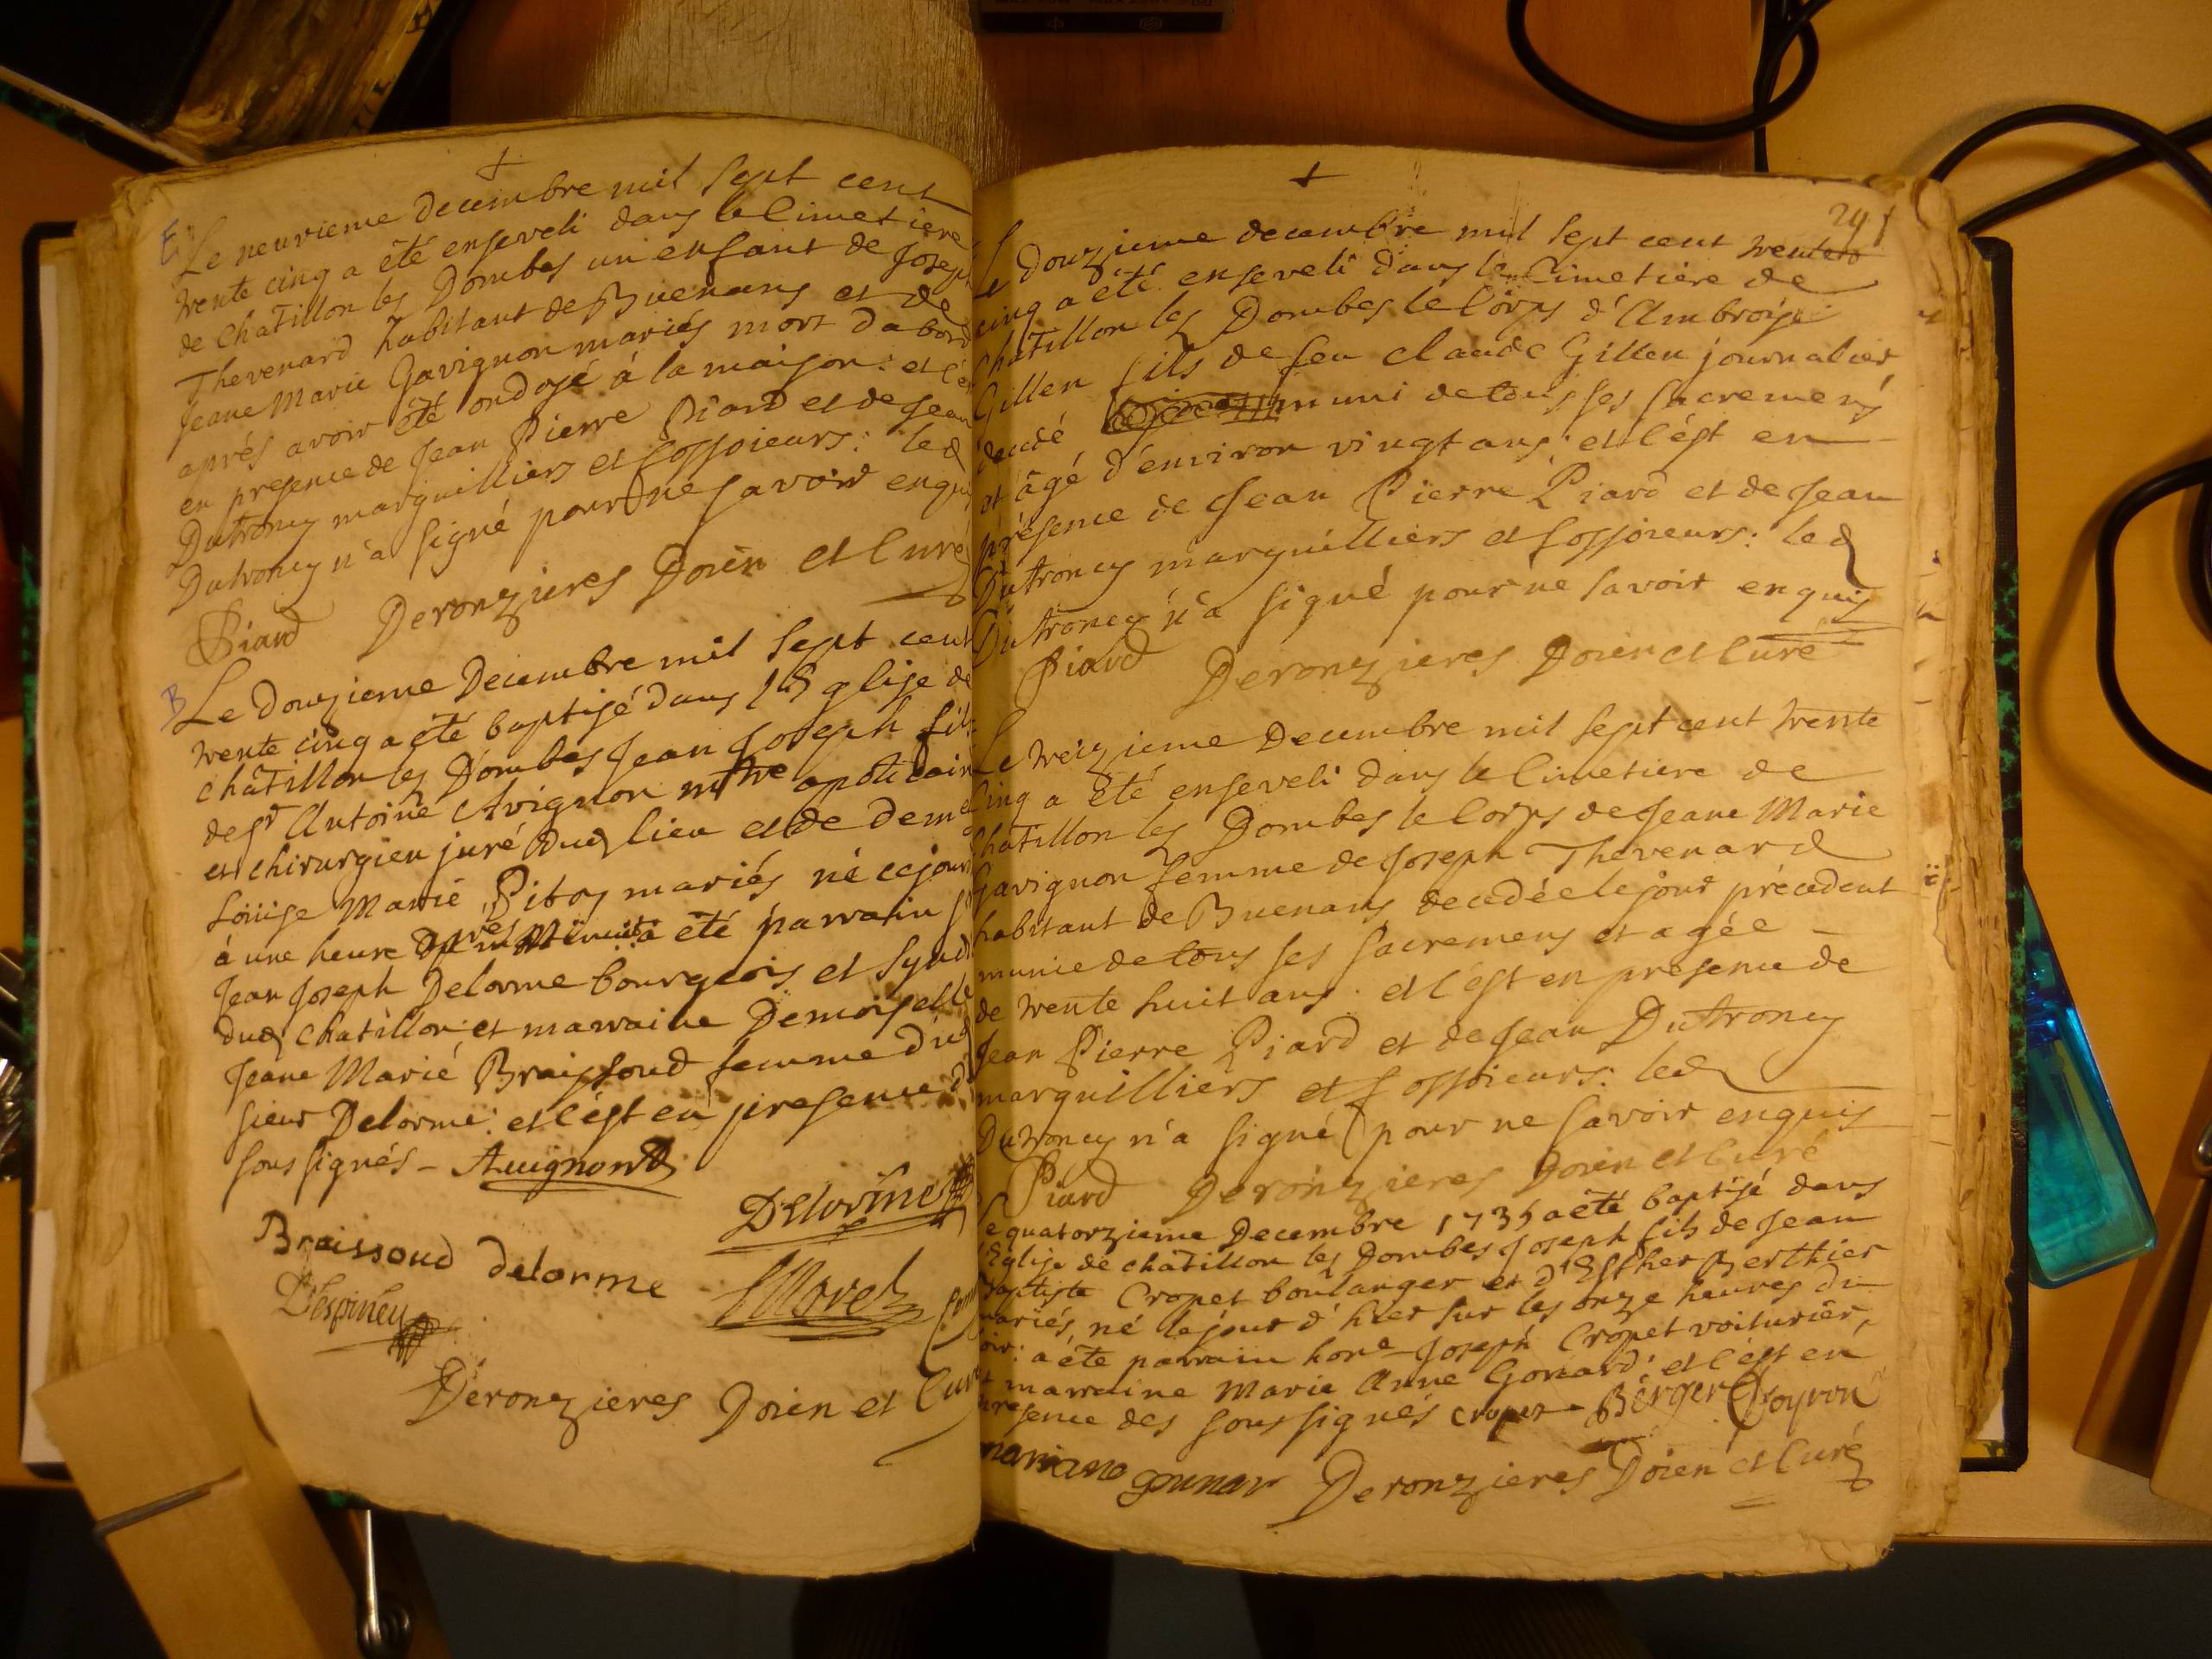 E
Le neuvieme Decembre mil sept cent
trente cinq a été enseveli dans le Cimetiere
de Chatillon les Dombes un enfant de Joseph
Thevenard habitant de Buenans et de
Jeane Marie Gavignon mariés mort dabord
aprés avoir été ondoyé à la maison : et c'est
en presence de Jean Pierre Piard et de Jean
Dutroncy marguilliers et fossoieurs : led
Dutroncy n'a signé pour ne savoir enquis
Piard Deronzieres Doien et Curé
B
Le Douzieme Decembre mil sept cent
trente cinq a été baptisé dans l'Eglise de
châtillon les Dombes Jean Joseph fils
de sr Antoine Avignon mtre apoticaire
et chirurgien juré dud lieu et de deme
Loüise Marie Pitoy mariés né ce jour
à une heure après minuit a été parrain sr
Jean Joseph Delorme bourgeois et syndic
dud Chatillon : et marraine Demoiselle
Jeane Marie Braissoud femme dud
sieur Delorme : et c'est en presence des
soussignés - Avignon
Delorme
Braissoud delorme
L'espiney Morel
Deronzieres Doien et Curé
291
Le Douzieme decembre mil sept cent trente
cinq a été enseveli dans le Cimetiere de
Chatillon les Dombes le Corps d'Ambroise
Gillen fils de feu Claude Gillen journalier
decedé muni de tous ses sacremens
et âgé d'environ vingt ans : et c'est en
présence de Jean Pierre Piard et de Jean
Dutroncy marguilliers et fossoieurs : led
Dutroncy n'a signé pour ne savoir enquis
Piard Deronzieres Doien et Curé
Le treizieme Decembre mil sept cent trente
Cinq a été enseveli dans le Cimetiere de
Chatillon les Dombes le Corps de Jeane Marie
Gavignon femme de Joseph Thevenard
habitant de Buenans decedée le jour précedent
munie de tous ses sacremens et agée
de trente huit ans : et c'est en presence de
Jean Pierre Piard et de Jean Dutroncy
marguilliers et fossoieurs : led
Dutroncy n'a signé pour ne savoir enquis
Piard Deronzieres Doien et Curé
Le quatorzieme Decembre 1735 a été baptisé dans
l'Eglise de chatillon les Dombes Joseph fils de Jean
Baptiste Cropet boulanger et d'Esther Berthier
mariés, né le jour d'hier sur les onze heures du
soir : a été parrain hone Joseph Cropet voiturier,
et marraine Marie Anne Gonard : et c'est en
presence des soussignés cropet Berger Poyron
mariane gounar Deronzieres Doien et Curé